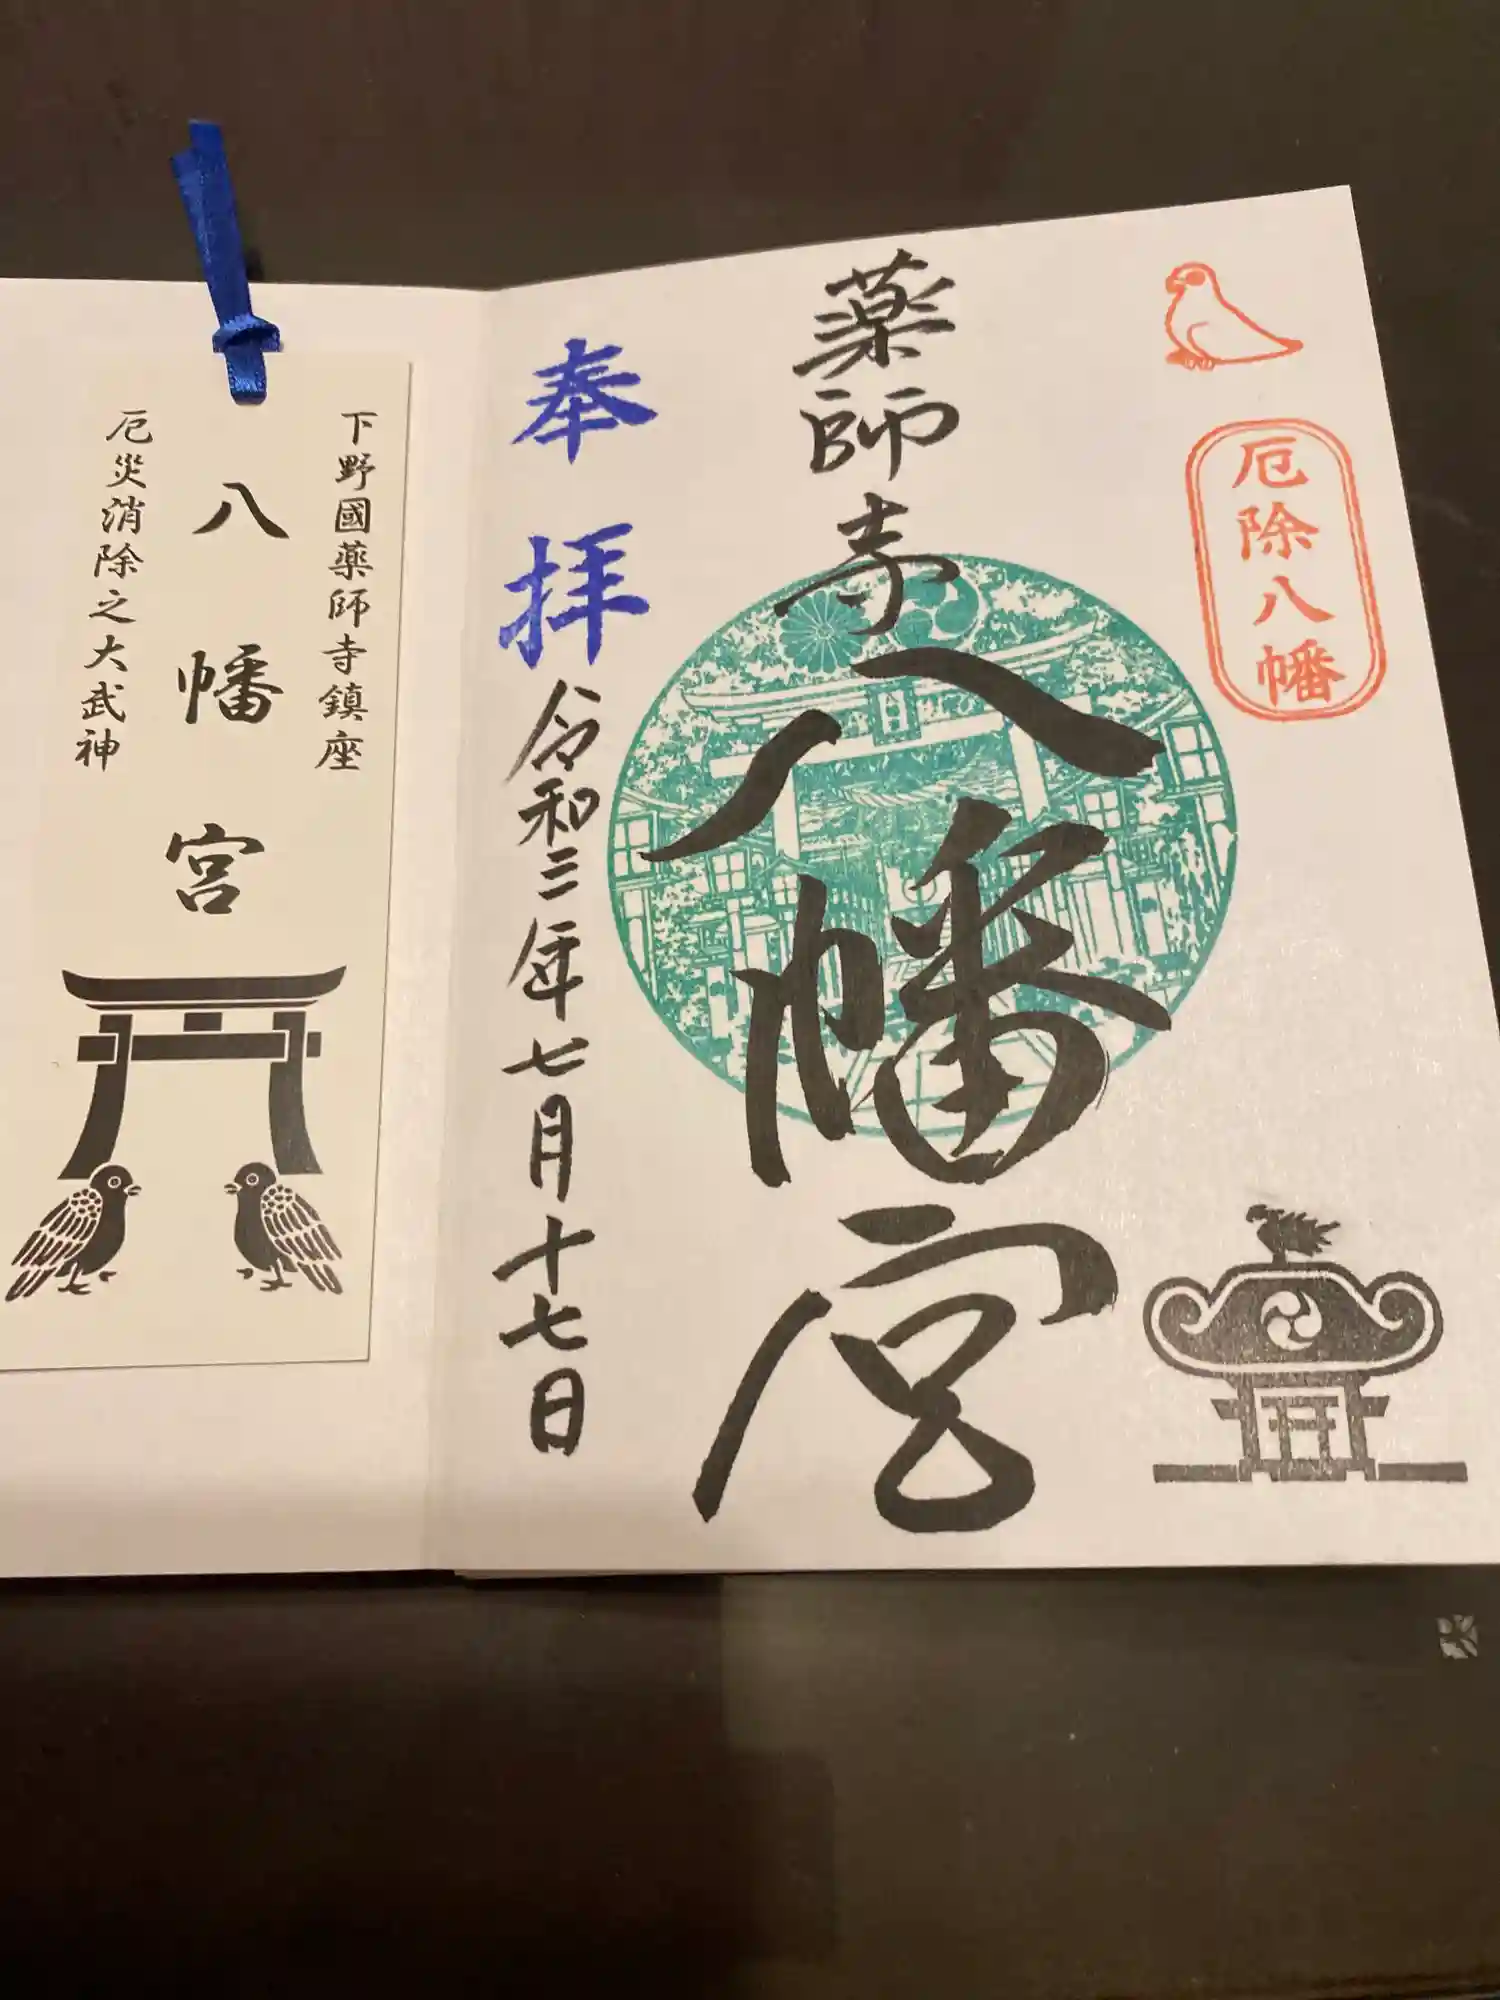 厄除八幡
薬師寺
八幡宮
奉拝
令和三年七月十七日
下野國薬師寺鎮座
八幡宮
厄災消除之大武神